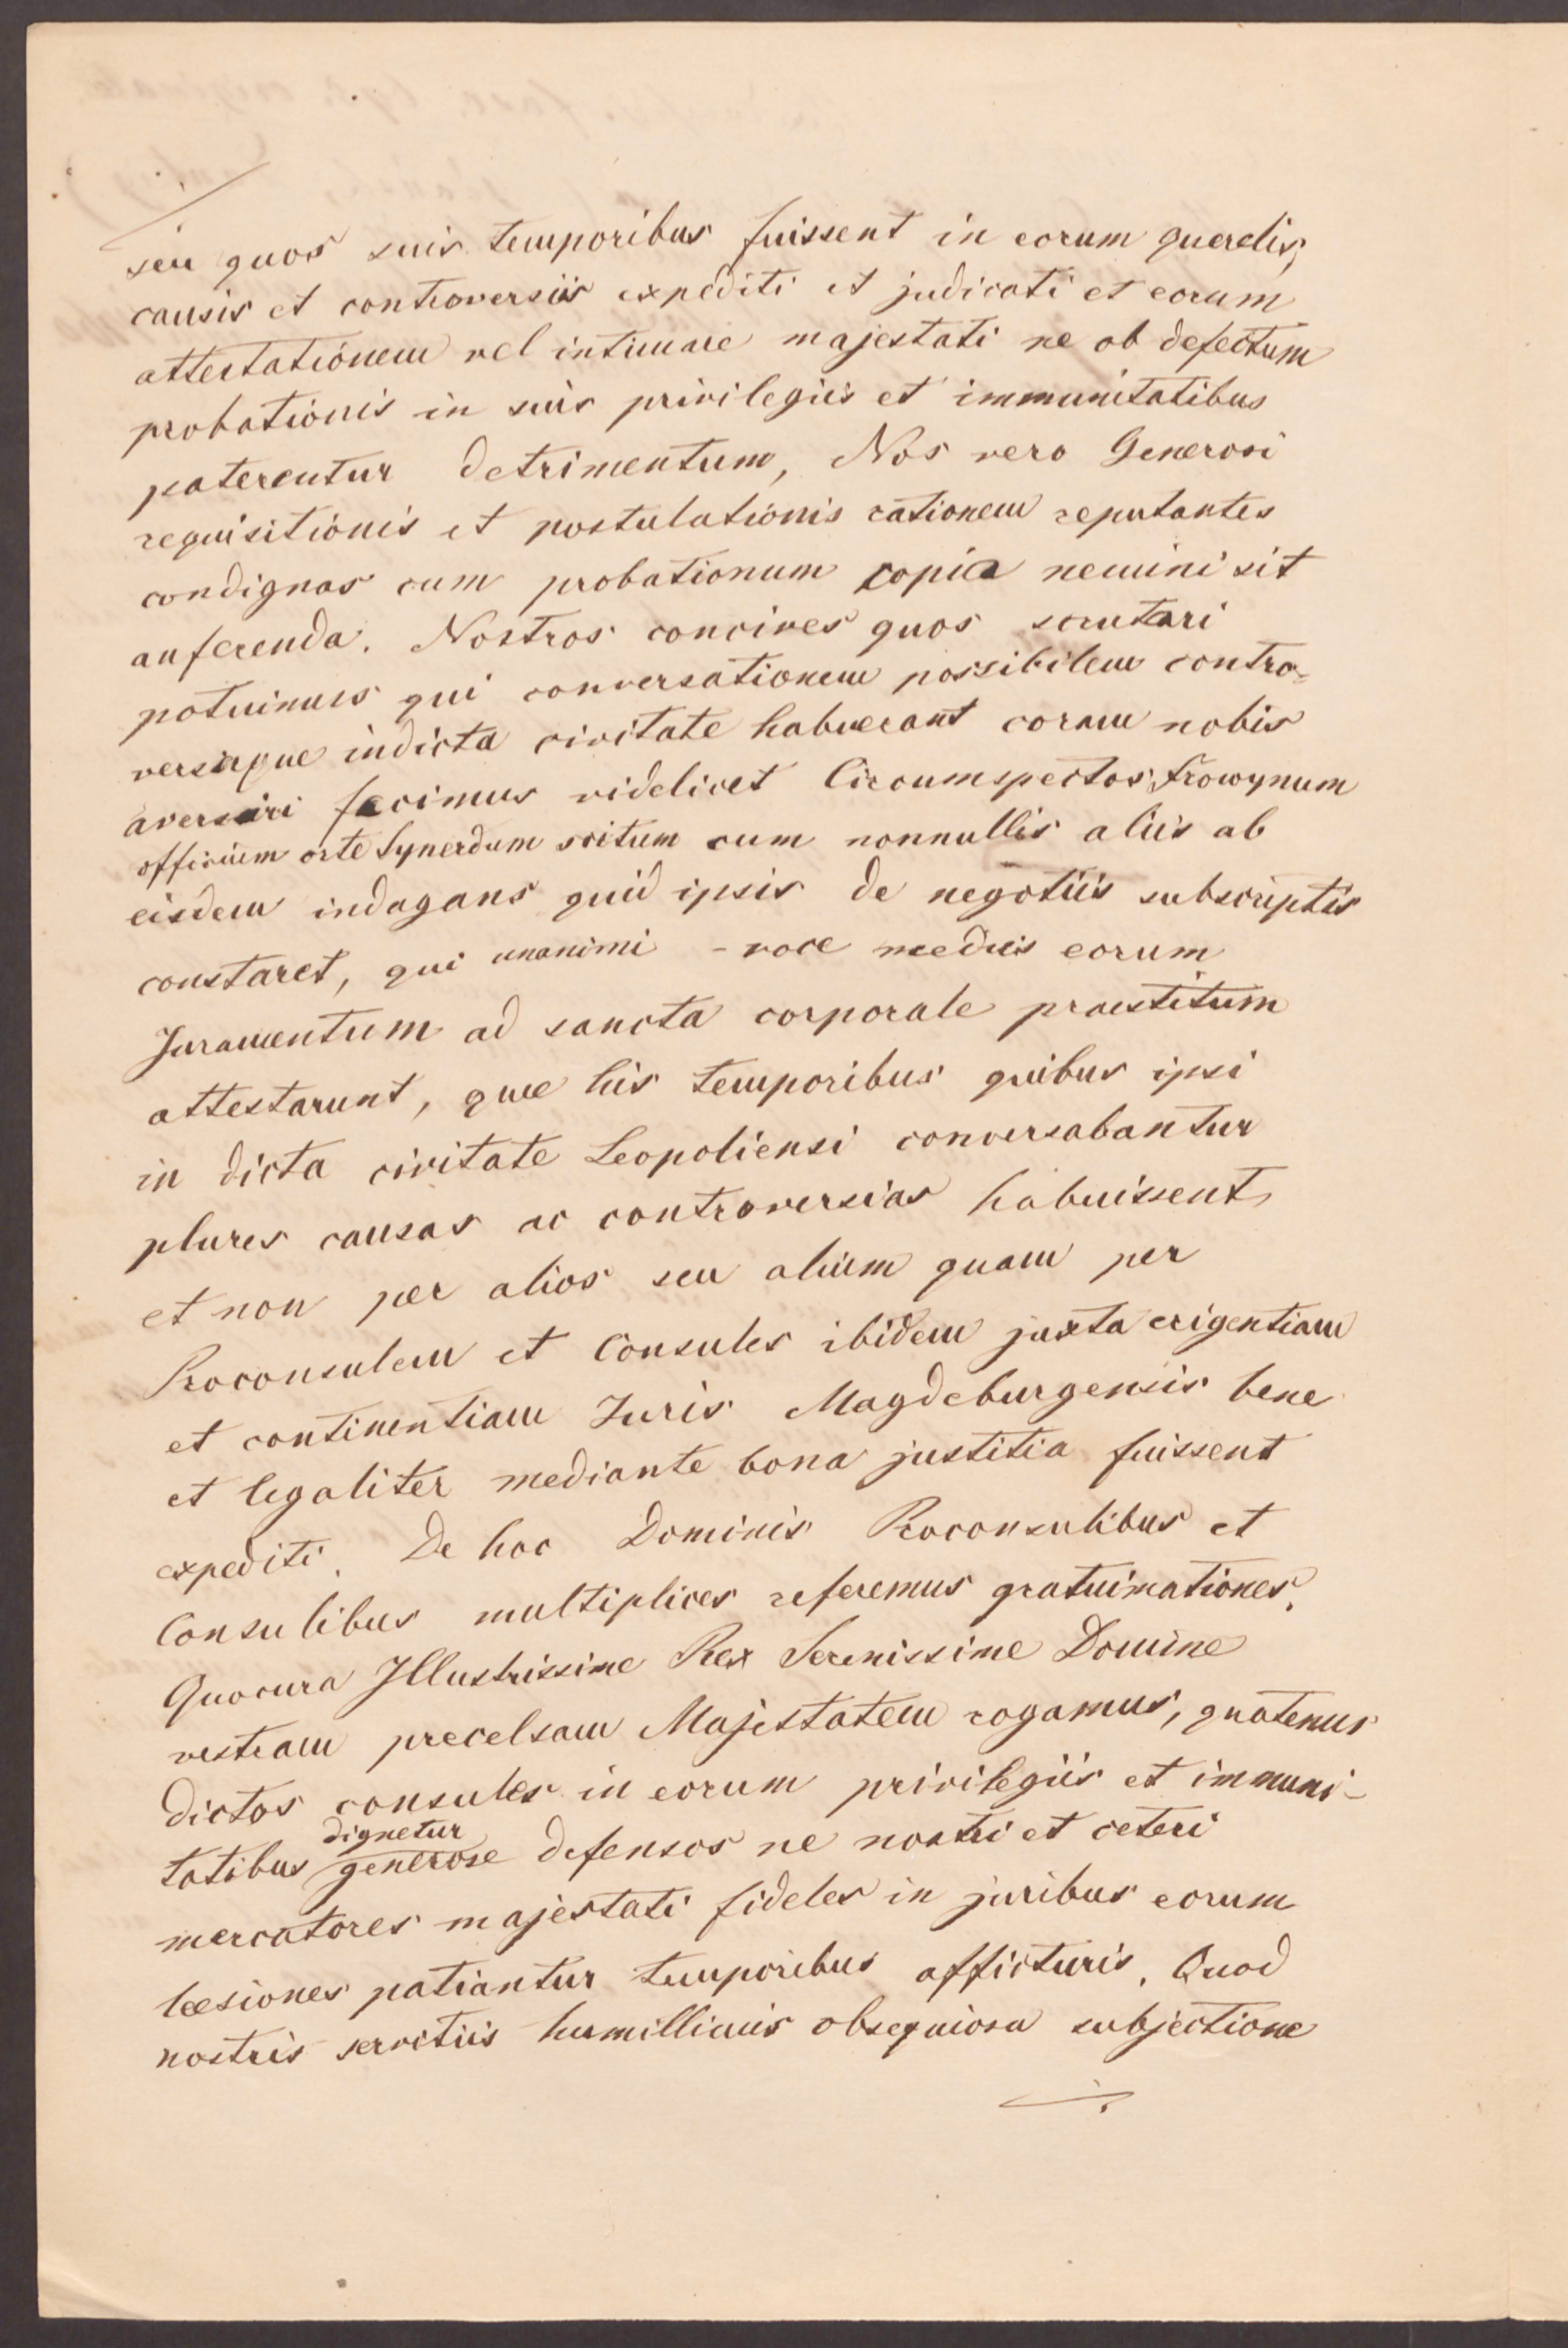 seu quos suis temporibus fuissent in eorum querelis,
causis et controversiis expediti et judicati et eorum
attestationem vel intimare majestati ne ob defectum
probationis in suis privilegiis et immunitatibus
paterentur detrimentum, Nos vero Generosi
requisitionis et postulationis rationem reputantes
condignas cum probationum copia nemini sit
auferenda. Nostros concives quos scrutari
potuimus qui conversationem possibilem contro-
versiaque indicta civitate habuerant coram nobis
fecimus videlicet Circumspectos Frowynum
officium orte Synerdum scitum cum nonnullis aliis ab
eisdem indagans quid ipsis de negotiis subscriptis
constaret, qui unanimi - voce mediis eorum
Juramentum ad sancta corporale praestitum
attestarunt, quae his temporibus quibus ipsi
in dicta civitate Leopoliensi conversabantur
plures causas ac controversias habuissent,
et non per alios seu alium quam per
Proconsulem et Consules ibidem juxta exigentiam
et continentiam Juris Magdeburgensis bene
et legaliter mediante bona justitia fuissent
expediti. De hoc Dominis Proconsulibus et
Consulibus multiplices referemus gratuimationes.
Quocura Illustrissime Rex Serenissime Domine
vestram precelsam Majestatem rogamus, quatenus
dictos consules in eorum privilegiis et immuni-
dignetur
tatibus generose defensos ne nostri et ceteri
mercatores majestati fideles in juribus eorum
lesiones patiantur temporibus afficturis. Quod
nostris servitiis humillimis obsequiosa subjectione